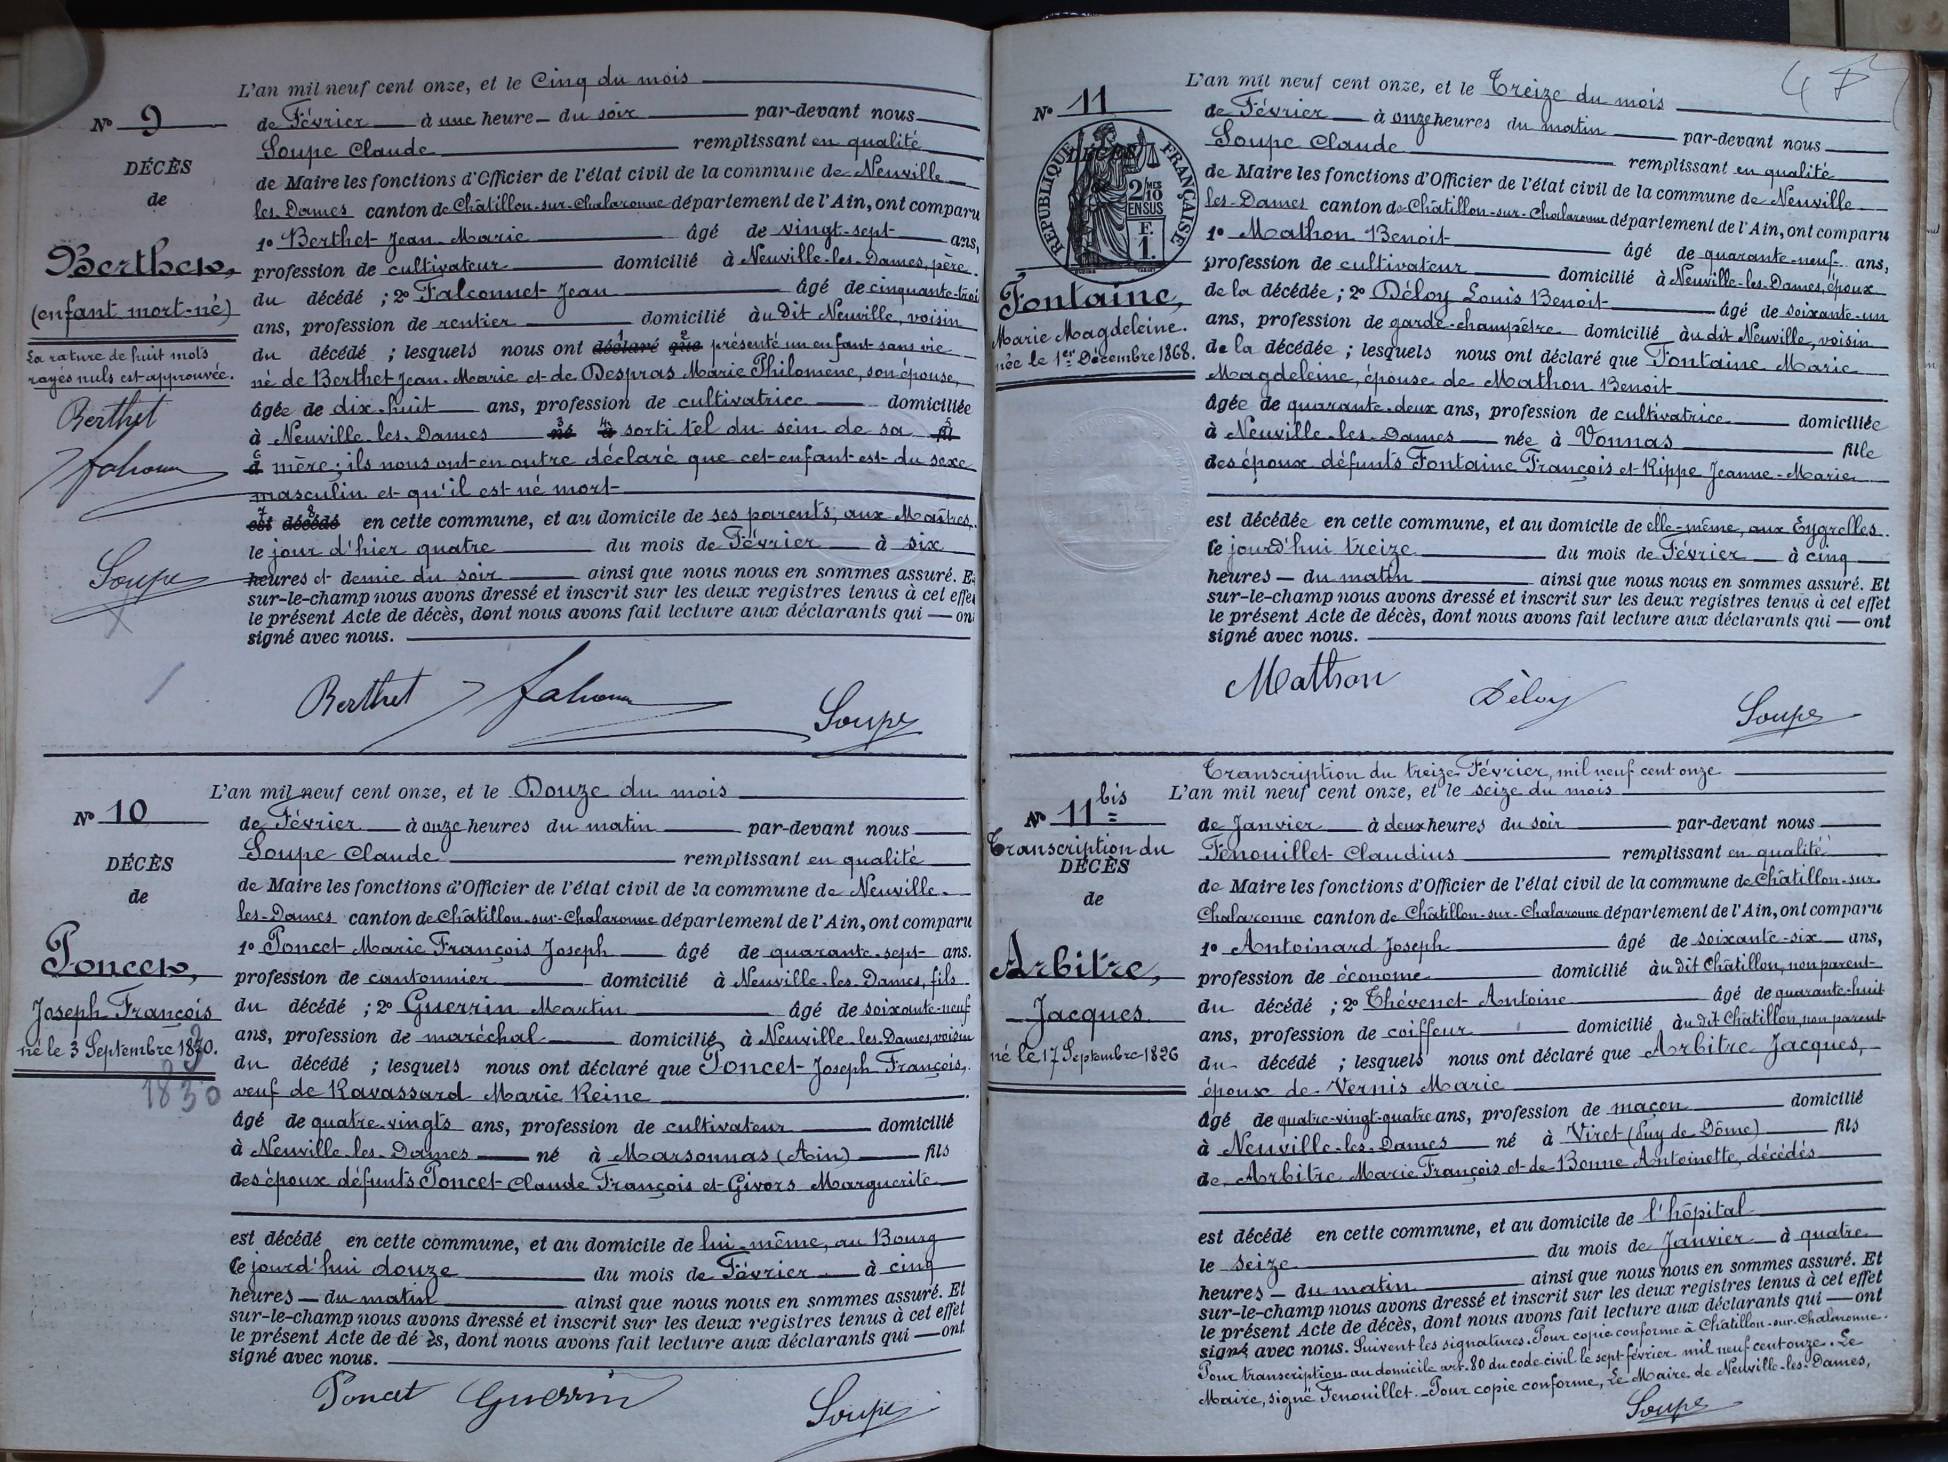 L'an mil neuf cent onze, et le Cinq du mois
N° 9
de Février à une heure du soir par-devant nous
Soupe Claude remplissant en qualité
DÉCÈS
de Maire les fonctions d'Officier de l'état civil de la commune de Neuville
de
les-Dames canton de Châtillon-sur-Chalaronne département de l'Ain, ont comparu
1° Berthet Jean-Marie âgé de vingt-sept ans,
Berthet,
profession de cultivateur domicilié à Neuville-les-Dames, père
du décédé ; 2° Falconnet Jean âgé de cinquante-troi
(enfant mort-né)
ans, profession de rentier domicilié au dit Neuville, voisin
La rature de huit mots
rayés nuls est approuvée.
du décédé ; lesquels nous ont déclaré que présenté un enfant sans vie
né de Berthet Jean-Marie et de Despras Marie Philomène, son épouse,
Berthet
âgée de dix-huit ans, profession de cultivatrice domiciliée
à Neuville-les-Dames né à sorti tel du sein de sa fil
d mère; ils nous ont en outre déclaré que cet enfant est du sexe
masculin et qu'il est né mort
est décédé en cette commune, et au domicile de ses parents, aux Maîtres,
le jour d'hier quatre du mois de Février à six
Soupe
heures et demie du soir ainsi que nous nous en sommes assuré. E
sur-le-champ nous avons dressé et inscrit sur les deux registres tenus à cet effe
le présent Acte de décès, dont nous avons fait lecture aux déclarants qui — on
signé avec nous.
Berthet Soupe
L'an mil neuf cent onze, et le Douze du mois
N° 10
de Février à onze heures du matin par-devant nous
Soupe Claude remplissant en qualité
DÉCÈS
de Maire les fonctions d'Officier de l'état civil de la commune de Neuville-
de
les-Dames canton de Châtillon-sur-Chalaronne département de l'Ain, ont comparu
1° Poncet Marie François Joseph âgé de quarante-sept ans.
Poncet,
profession de cantonnier domicilié à Neuville-les-Dames, fils
Joseph François
du décédé ; 2° Guerrin Martin âgé de soixante-neuf
né le 3 Septembre 1830.
ans, profession de maréchal domicilié à Neuville-les-Dames, voisin
1830
du décédé ; lesquels nous ont déclaré que Poncet Joseph François,
veuf de Ravassard Marie Reine
âgé de quatre-vingts ans, profession de cultivateur domicilié
à Neuville-les-Dames né à Marsonnas (Ain) fils
des époux défunts Poncet Claude François et Givors Marguerite
est décédé en cette commune, et au domicile de lui-même, au Bourg
ce jourd'hui douze du mois de Février à cinq
heures — du matin ainsi que nous nous en sommes assuré. Et
sur-le-champ nous avons dressé et inscrit sur les deux registres tenus à cet effet
le présent Acte de dé ès, dont nous avons fait lecture aux déclarants qui — ont
signé avec nous.
Poncet Guerrin Soupe
L'an mil neuf cent onze, et le Treize du mois
N° 11
de Février à onze heures du matin par-devant nous
Soupe Claude remplissant en qualité
DÉCÈS
RÉPUBLIQUE FRANÇAISE
2/10 MES
EN SUS
F.
1.
de Maire les fonctions d'Officier de l'état civil de la commune de Neuville
les-Dames canton de Châtillon-sur-Chalaronne département de l'Ain, ont comparu
1° Mathon Benoit âgé de quarante-neuf ans,
profession de cultivateur domicilié à Neuville-les-Dames, époux
Fontaine,
de la décédée ; 2° Déloy Louis Benoit âgé de soixante-un
Marie Magdeleine.
ans, profession de garde-champêtre domicilié au dit Neuville, voisin
née le 1er Décembre 1868.
de la décédée ; lesquels nous ont déclaré que Fontaine Marie
Magdeleine, épouse de Mathon Benoit
âgée de quarante-deux ans, profession de cultivatrice domiciliée
à Neuville-les-Dames née à Vonnas fille
des époux défunts Fontaine François et Rippe Jeanne-Marie
est décédée en cette commune, et au domicile de elle-même, aux Eygrelles
ce jourd'hui treize du mois de Février à cinq
heures — du matin ainsi que nous nous en sommes assuré. Et
sur-le-champ nous avons dressé et inscrit sur les deux registres tenus à cet effet
le présent Acte de décès, dont nous avons fait lecture aux déclarants qui — ont
signé avec nous.
Mathon Déloy Soupe
Transcription du treize Février, mil neuf cent onze
L'an mil neuf cent onze, et le seize du mois
N° 11 bis
de Janvier à deux heures du soir par-devant nous
Transcription du
Fenouillet Claudius remplissant en qualité
DÉCÈS
de Maire les fonctions d'Officier de l'état civil de la commune de Châtillon-sur-
de
Chalaronne canton de Châtillon-sur-Chalaronne département de l'Ain, ont comparu
1° Antoinard Joseph âgé de soixante-six ans,
Arbitre,
profession de économe domicilié au dit Châtillon, non parent
Jacques
du décédé ; 2° Thévenet Antoine âgé de quarante-huit
ans, profession de coiffeur domicilié au dit Châtillon, non parent
né le 17 Septembre 1826
du décédé ; lesquels nous ont déclaré que Arbitre Jacques,
époux de Vernis Marie
âgé de quatre-vingt-quatre ans, profession de maçon domicilié
à Neuville-les-Dames né à Viret (Puy de Dôme) fils
de Arbitre Marie François et de Bonne Antoinette, décédés
est décédé en cette commune, et au domicile de l'hôpital
le seize du mois de Janvier à quatre
heures — du matin ainsi que nous nous en sommes assuré. Et
sur-le-champ nous avons dressé et inscrit sur les deux registres tenus à cet effet
le présent Acte de décès, dont nous avons fait lecture aux déclarants qui — ont
signé avec nous. Suivent les signatures. Pour copie conforme à Châtillon-sur-Chalaronne.
Pour transcription au domicile art. 80 du code civil le sept février mil neuf cent onze. Le
Maire, signé Fenouillet. Pour copie conforme, Le Maire de Neuville-les-Dames,
Soupe